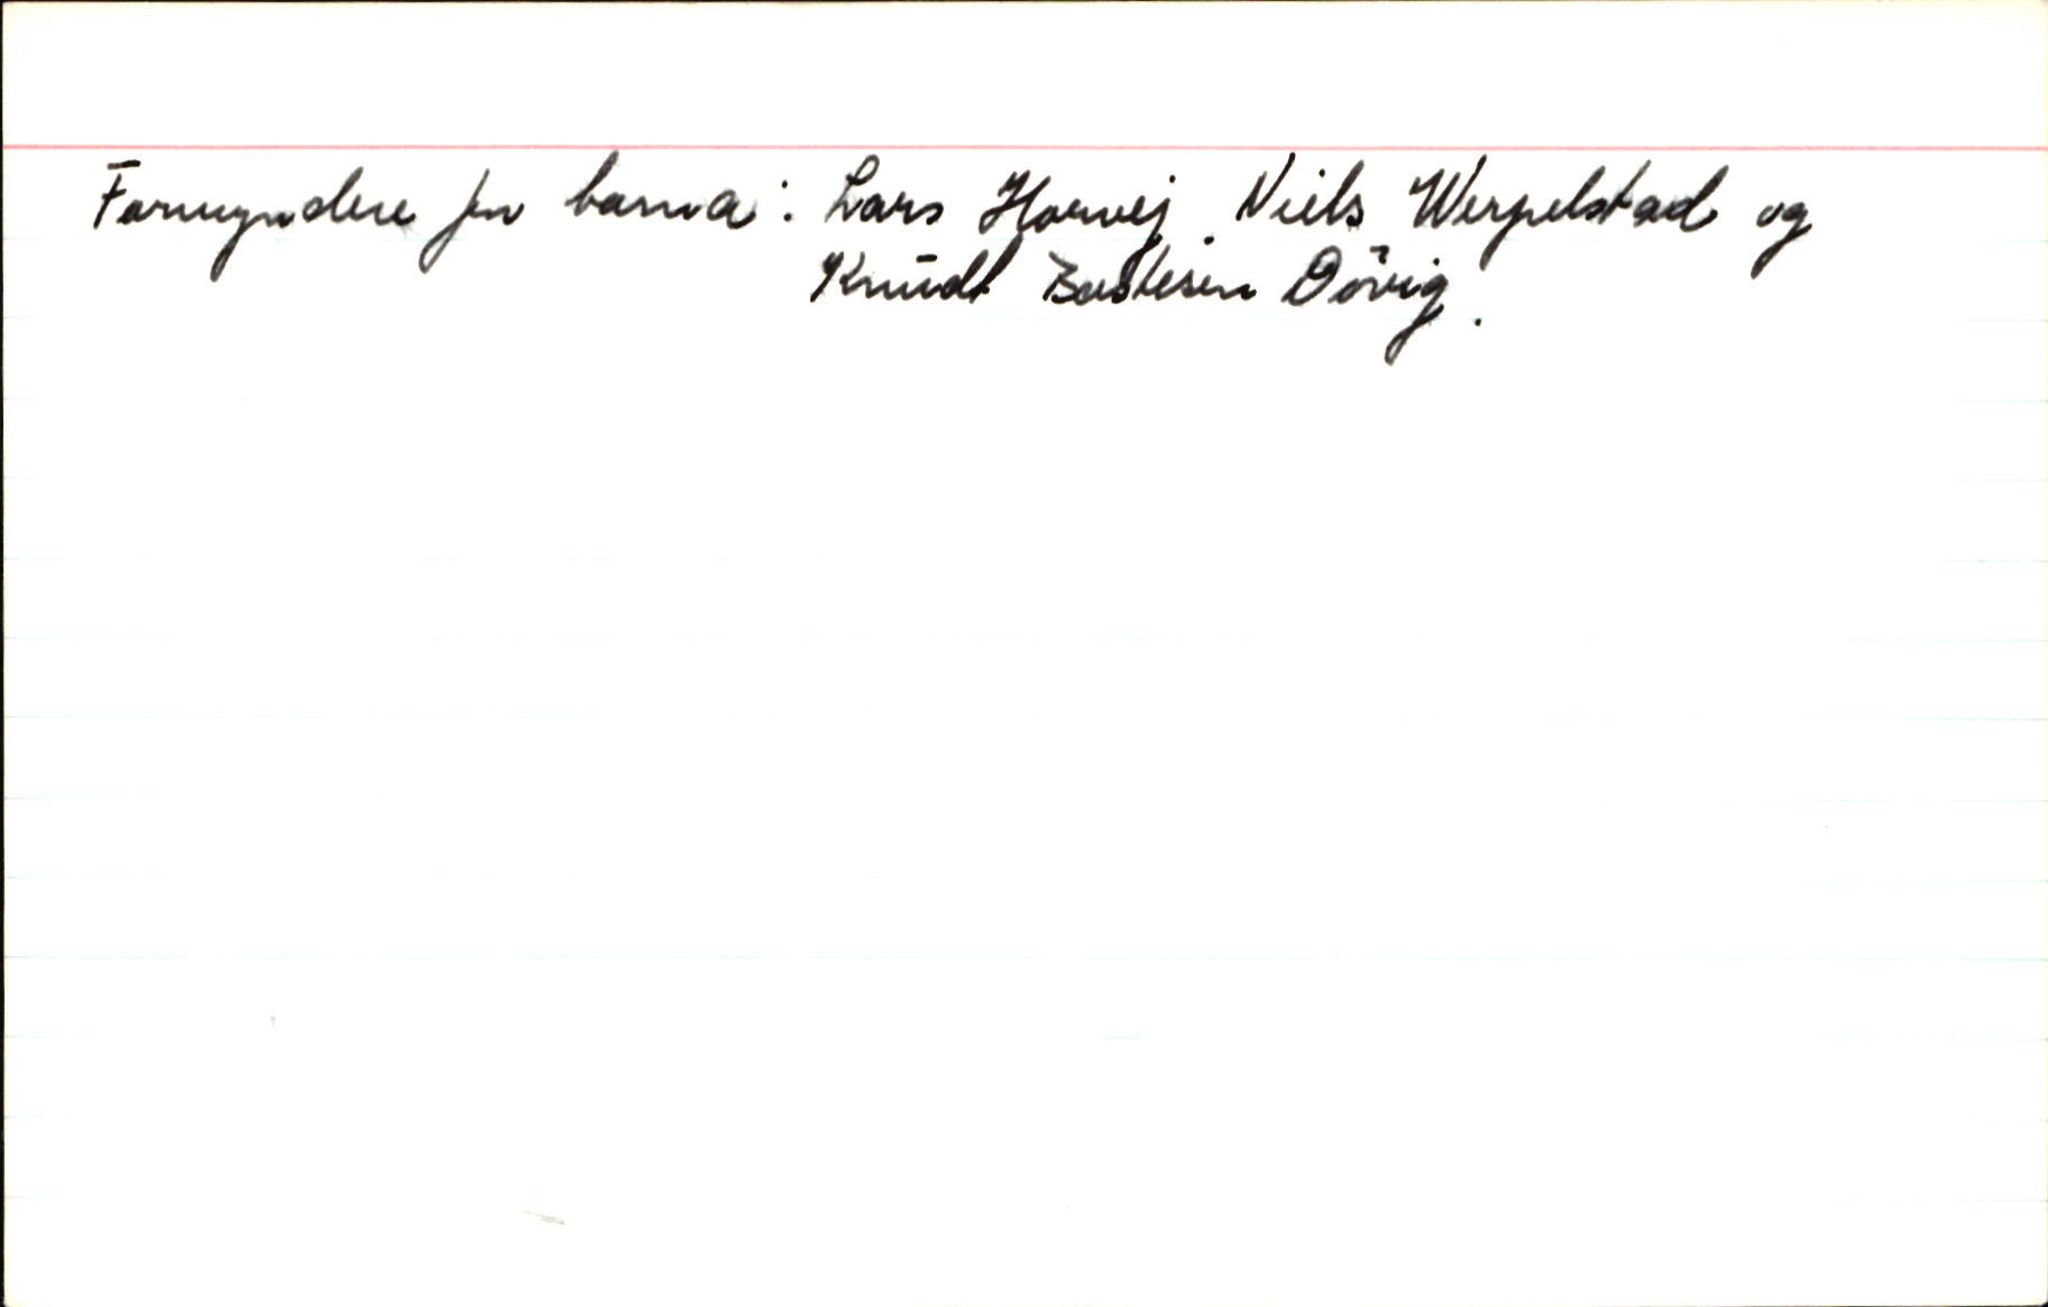 Formyndere for barna: Lars Horvej, Niels Werpelstad og
Knüdt Bastesen Dövig.